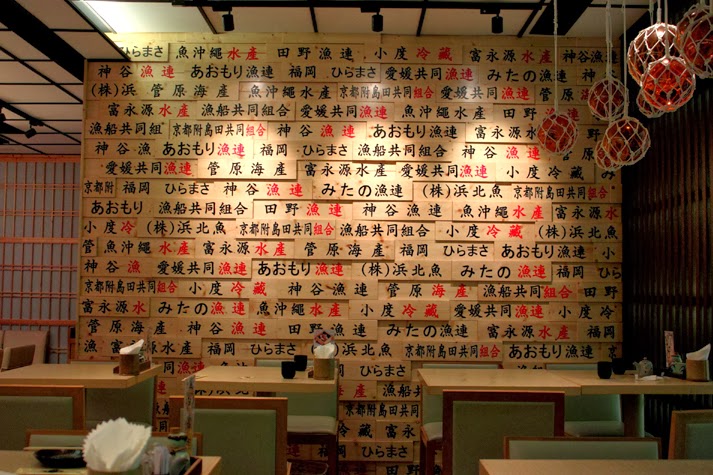 ひらまさ 魚沖縄水産 田野漁連 小度冷蔵 富永源水産 神谷漁
神谷漁連 あおもり漁連 福岡 ひらまさ 愛媛共同漁連 みたの漁連
(株)浜 菅原海産 魚沖縄水産 京都附島田共同組合 愛媛共同漁連 菅原
富永源水産 漁船共同組合 愛媛共同漁連 魚沖縄水産 田野
漁船共同組 京都附島田共同組合 神谷漁連 あおもり漁連 富永源水産
漁連 あおもり漁連 福岡 ひらまさ 漁船共同組合 神谷漁連
愛媛共同漁連 菅原海産 富永源水産 愛媛共同漁連 小度冷蔵
京都附 福岡 ひらまさ 神谷漁連 みたの漁連 (株)浜北魚 京都附島田共同組合
あおもり漁連 漁船共同組合 田野漁連 神谷漁連 魚沖縄水産 田野
小度冷 (株)浜北魚 京都附島田共同組合 漁船共同組合 小度冷蔵 富永源水
菅 魚沖縄水産 富永源水産 菅原海産 福岡 ひらまさ あおもり漁連 小
神谷漁 愛媛共同漁連 あおもり漁連 (株)浜北魚 みたの漁連 福岡 ひら
京都附島田共同組合 小度冷蔵 神谷漁連 菅原海産 京都附島田共同組合 田
富永源水 みたの漁連 魚沖縄水産 小度冷蔵 愛媛共同漁連 小度冷
菅原海産 神谷漁連 田野漁連 みたの漁連 富永源水産 福岡
福岡 ひらまさ (株)浜北魚 京都附島田共同組合 あおもり漁連
漁船共同組
京都附島田共同
小度冷蔵 富永源水